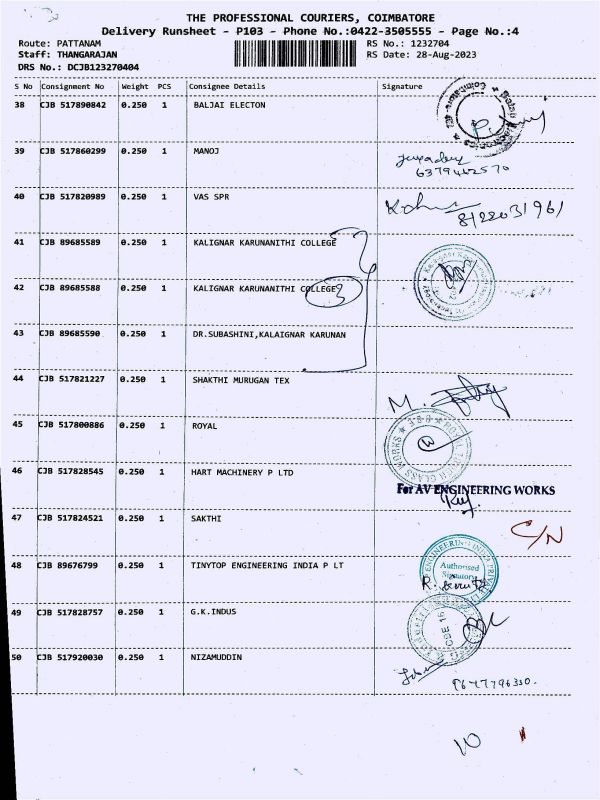 THE PROFESSIONAL COURIERS, COIMBATORE
Delivery Runsheet - P103 - Phone No.:0422-3505555 - Page No.:4
Route: PATTANAM RS No.: 1232704
Staff: THANGARAJAN RS Date: 28-Aug-2023
DRS No.: DCJB123270404
S No Consignment No Weight PCS Consignee Details Signature
38 CJB 517890842 0.250 1 BALJAI ELECTON
39 CJB 517860299 0.250 1 MANOJ
40 CJB 517820989 0.250 1 VAS SPR
41 CJB 89685589 0.250 1 KALIGNAR KARUNANITHI COLLEGE
42 CJB 89685588 0.250 1 KALIGNAR KARUNANITHI COLLEGE 3
43 CJB 89685590 0.250 1 DR.SUBASHINI,KALAIGNAR KARUNAN
44 CJB 517821227 0.250 1 SHAKTHI MURUGAN TEX M.
45 CJB 517800886 0.250 1 ROYAL
46 CJB 517828545 0.250 1 HART MACHINERY P LTD
For AV ENGINEERING WORKS
47 CJB 517824521 0.250 1 SAKTHI C/N
48 CJB 89676799 0.250 1 TINYTOP ENGINEERING INDIA P LT Authorised Signatory
49 CJB 517828757 0.250 1 G.K.INDUS
50 CJB 517920030 0.250 1 NIZAMUDDIN
10